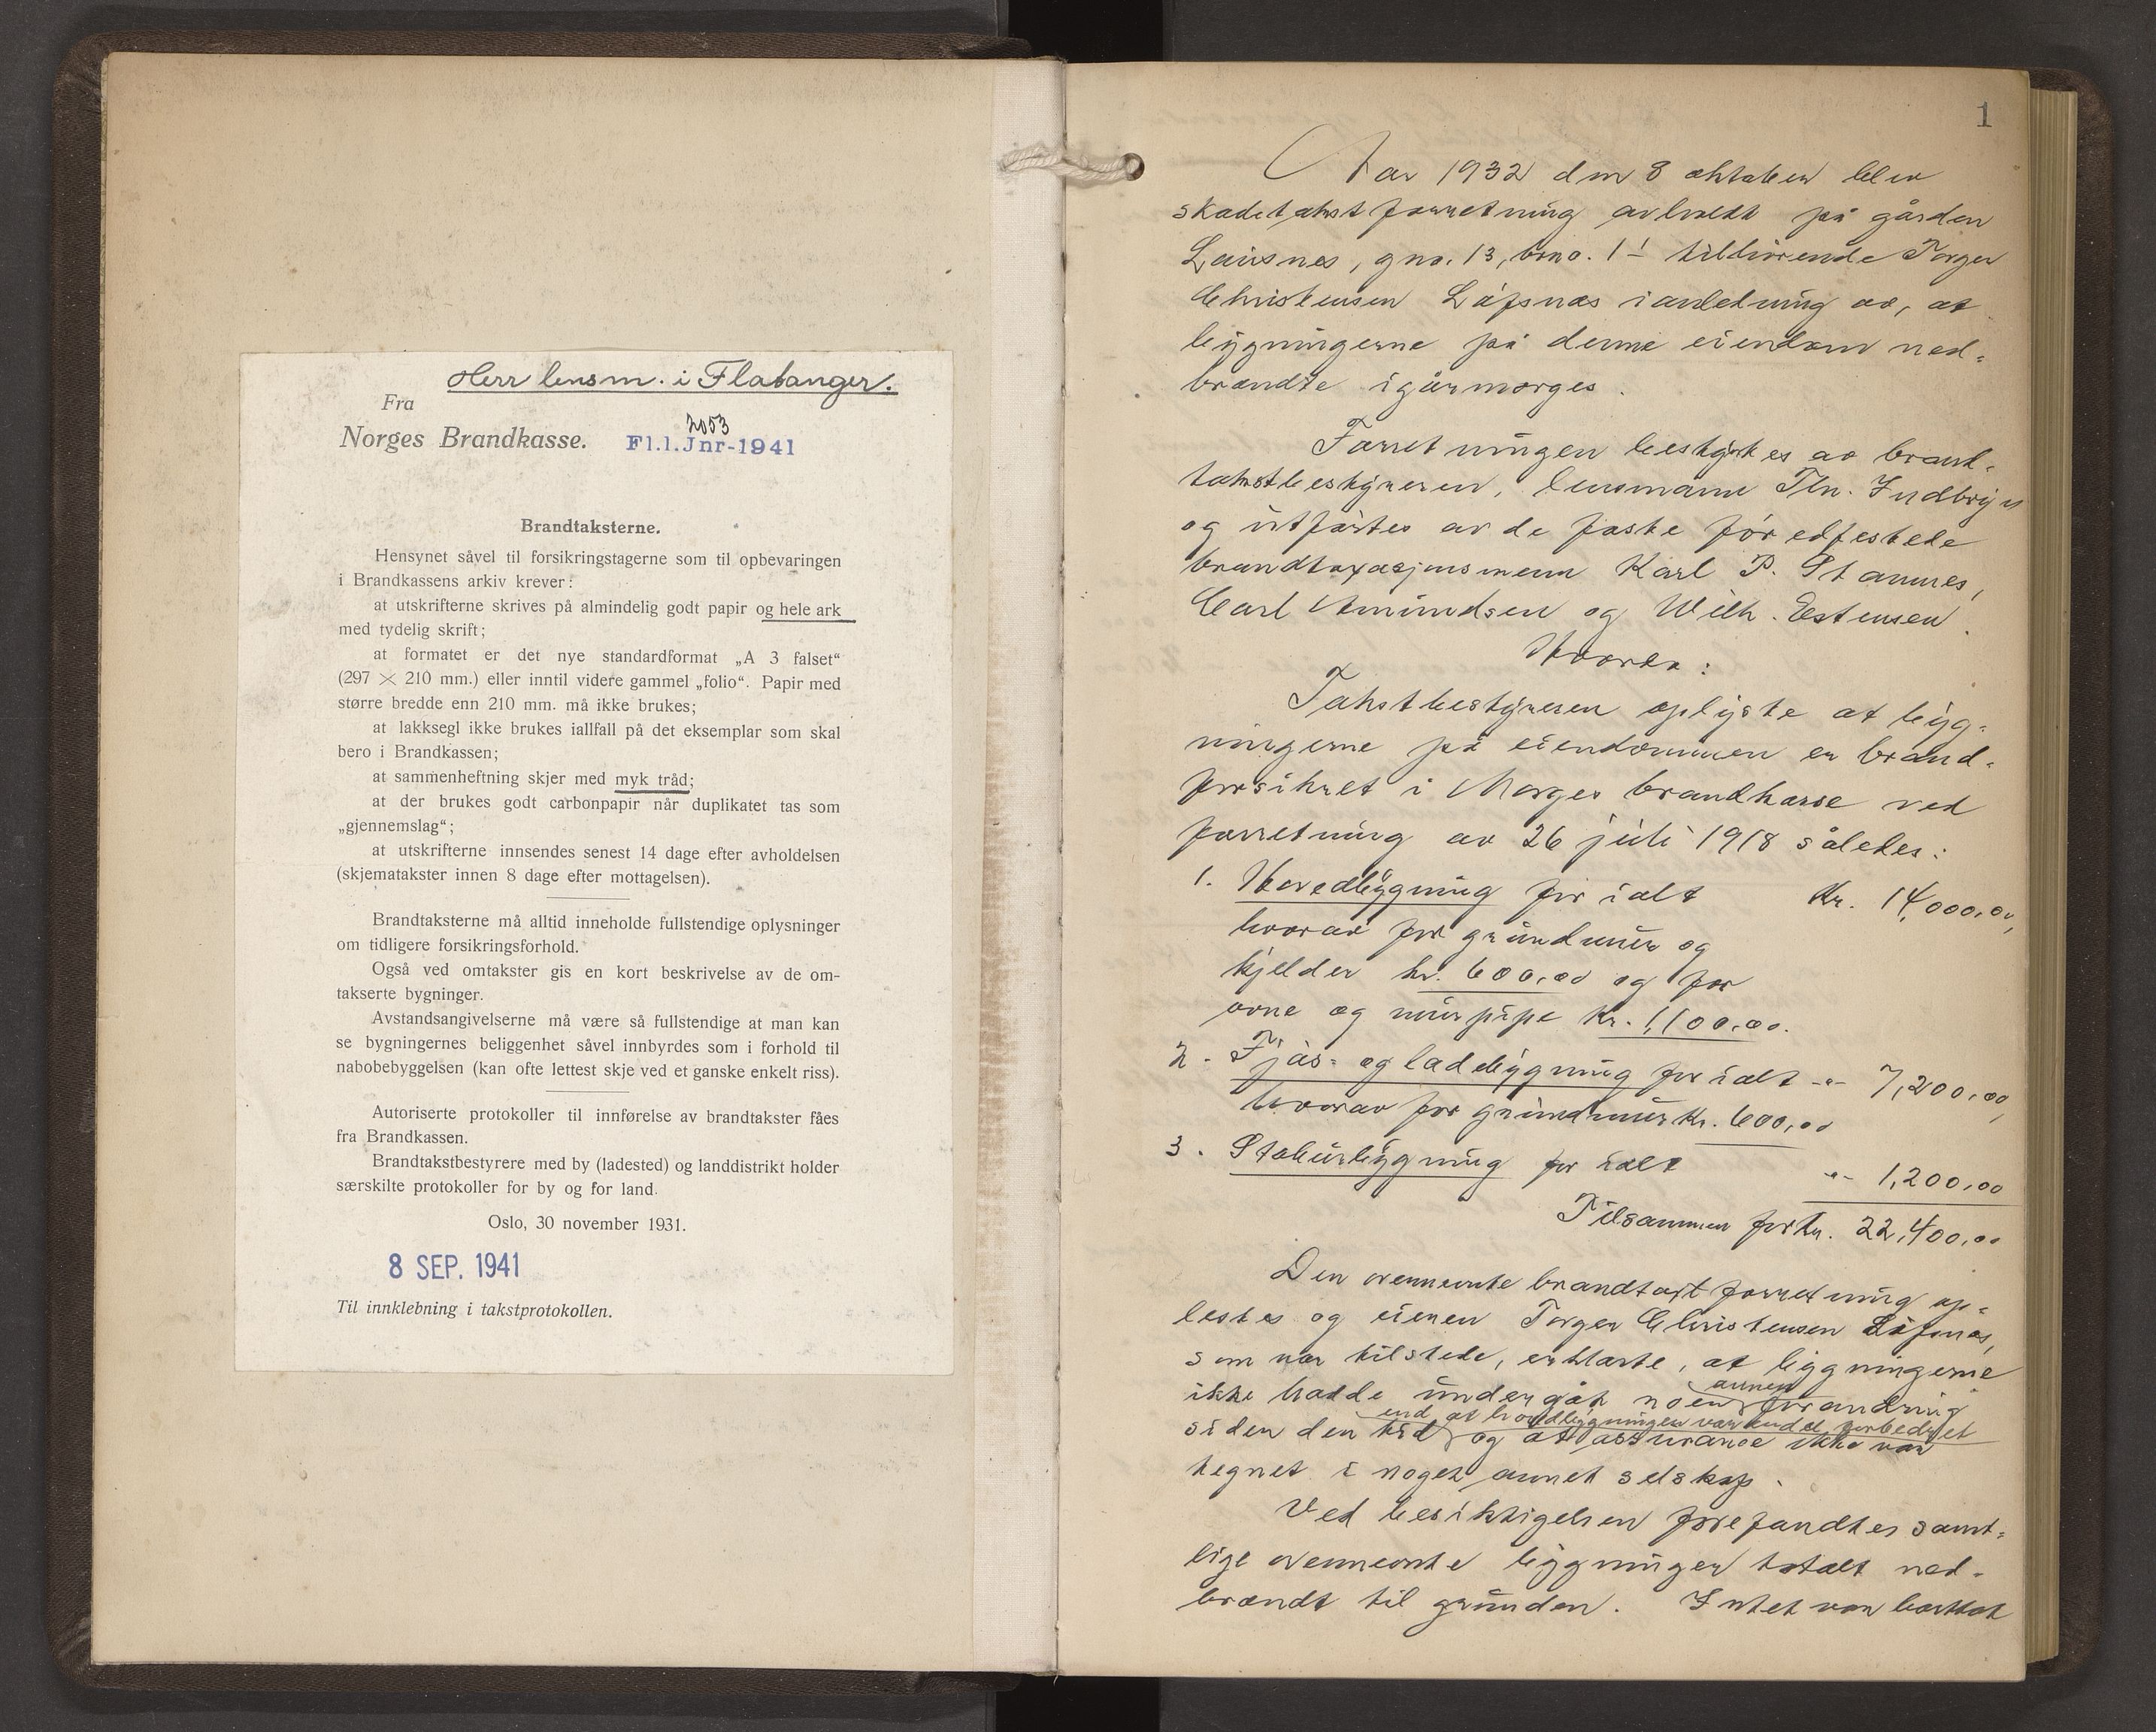 Herr lensm. i Flatanger.
Fra
Norges Brandkasse.
2053
Fl.l.Jnr-1941
Brandtaksterne.
Hensynet såvel til forsikringstagerne som til opbevaringen
i Brandkassens arkiv krever:
at utskrifterne skrives på almindelig godt papir og hele ark
med tydelig skrift;
at formatet er det nye standardformat „A 3 falset“
(297 × 210 mm.) eller inntil videre gammel „folio“. Papir med
større bredde enn 210 mm. må ikke brukes;
at lakksegl ikke brukes iallfall på det eksemplar som skal
bero i Brandkassen;
at sammenheftning skjer med myk tråd;
at der brukes godt carbonpapir når duplikatet tas som
„gjennemslag“;
at utskrifterne innsendes senest 14 dage efter avholdelsen
(skjematakster innen 8 dage efter mottagelsen).
Brandtaksterne må alltid inneholde fullstendige oplysninger
om tidligere forsikringsforhold.
Også ved omtakster gis en kort beskrivelse av de om-
takserte bygninger.
Avstandsangivelserne må være så fullstendige at man kan
se bygningernes beliggenhet såvel innbyrdes som i forhold til
nabobebyggelsen (kan ofte lettest skje ved et ganske enkelt riss).
Autoriserte protokoller til innførelse av brandtakster fåes
fra Brandkassen.
Brandtakstbestyrere med by (ladested) og landdistrikt holder
særskilte protokoller for by og for land.
Oslo, 30 november 1931.
8 SEP. 1941
Til innklebning i takstprotokollen.
1
Aar 1932 den 8 oktober blev
skadetakstforretning avholdt på gården
Lausnes, gno. 13, brno. 1 tilhørende Torger
Christensen Løfsnæs i anledning av, at
bygningerne på denne eiendom ned-
brændte igårmorges.
Forretningen bestyrtes av brand-
takstbestyreren, lensmann Thn. Indbryn
og utførtes av de faste før edfestede
brandtaxasjonsmenn Karl P. Stamnes,
Carl Amundsen og Wilh. Estensen.
Hvorda:
Takstbestyreren oplyste at byg-
ningerne på eiendommen er brand-
forsikret i Norges brandkasse ved
forretning av 26 juli 1918 således:
1. Hovedbygning for ialt Kr. 14,000,00,
hvorav for grundmur og
kjelder kr. 600,00 og for
ovne og murpipe Kr. 1,100,00.
2. Fjøs- og ladebygning for ialt -"- 7,200,00,
hvorav for grundmur Kr. 600,00
3. Staburbygning for ialt -"- 1,200,00
Tilsammen for Kr. 22,400,00
Den ovennevnte brandtaxtforretning op-
lestes og eieren Torger Christensen Løfsnæs,
som var tilstede, erklærte, at bygningerne
ikke hadde undergåt noen annen forandring
siden den tid end at hovedbygningen var endel forbedret og at assurance ikke var
tegnet i noget annet selskap.
Ved besiktigelsen forefandtes samt-
lige ovennevnte bygninger totalt ned-
brændt til grunden. Intet var